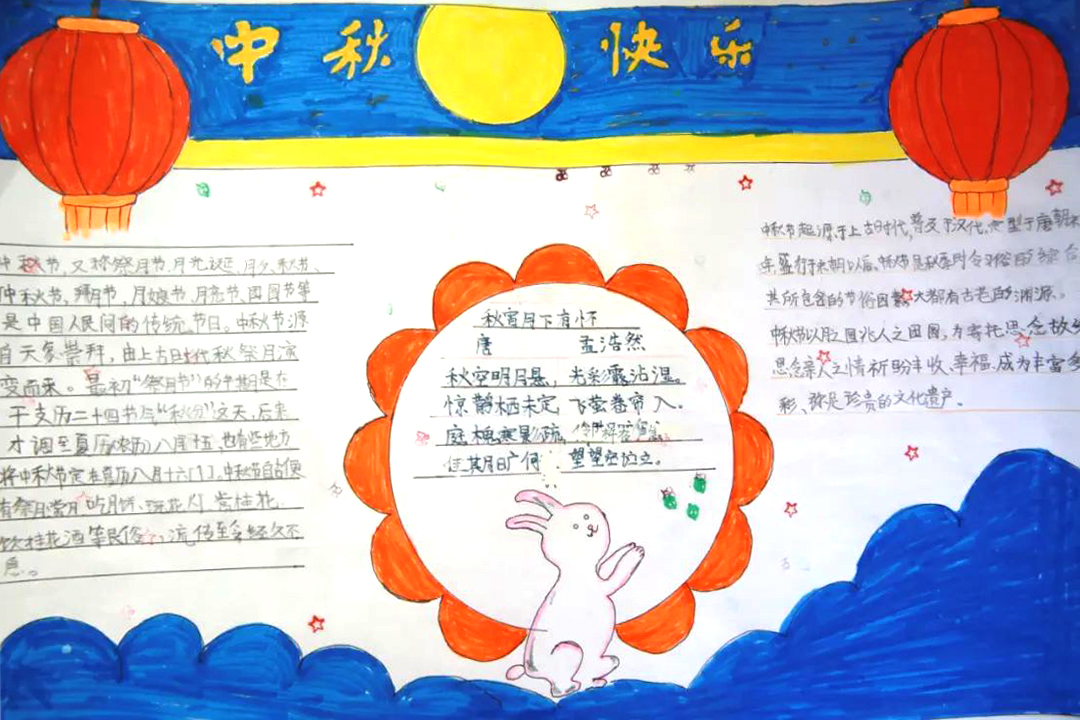 中秋 快乐
中秋节,又称祭月节、月光诞、月夕、秋节、
仲秋节、拜月节、月娘节、月亮节、团圆节等
是中国人民间的传统节日。中秋节源
自天象崇拜,由上古时代秋祭月演
变而来。最初“祭月节”的
干支历二十四节气“秋分”这天,后来
才调至夏历(农历)八月十五,也有些地方
将中秋节定在夏历八月十六[1]。中秋节自古便
有祭月、赏月、吃月饼、玩花灯、赏桂花、
饮桂花酒等民俗,流传至今,经久不
息。
秋宵月下有怀
唐 孟浩然
秋空明月悬,光彩露沾湿。
惊鹊栖未定,飞萤卷帘入。
庭槐寒影疏,
佳期旷何 望望空伫立。
中秋节起源于上古时代,普及于汉代,定型于唐朝
年,盛行于宋朝以后。中秋节是秋季时令习俗的综合
其所包含的节俗因素,大都有古老的渊源。
中秋节以月之圆兆人之团圆,为寄托思念故
思念亲人之情,祈盼丰收、幸福,成为丰富多
彩、弥足珍贵的文化遗产。